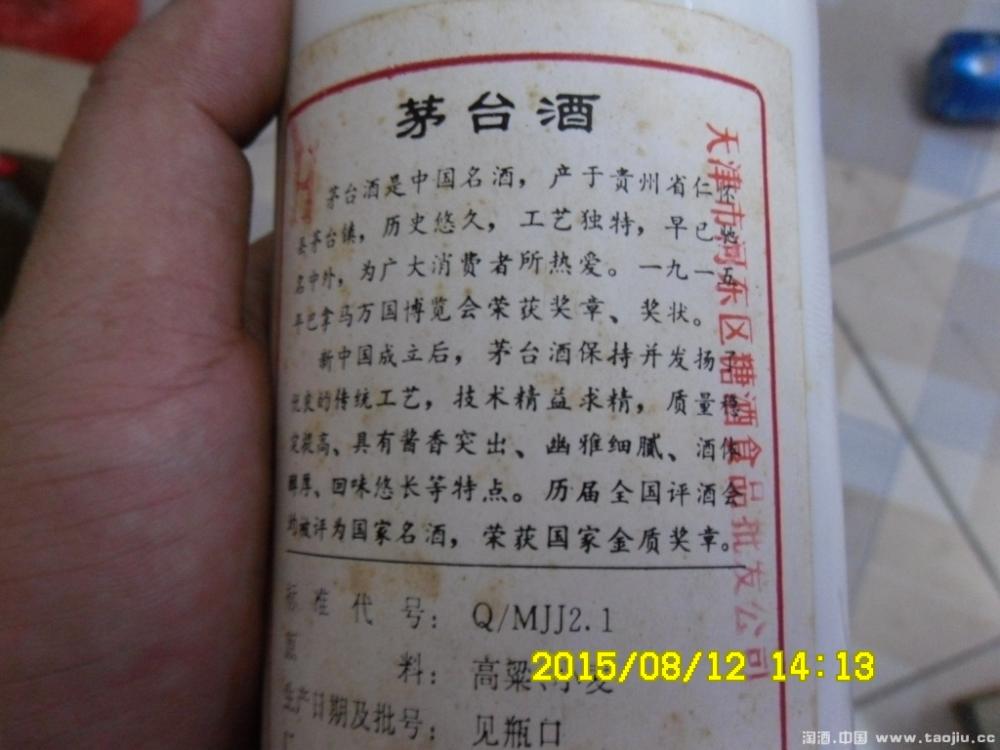 茅台酒
茅台酒是中国名酒，产于贵州省仁怀
县茅台镇，历史悠久，工艺独特，早已驰
名中外，为广大消费者所热爱。一九一五
年巴拿马万国博览会荣获奖章、奖状。
新中国成立后，茅台酒保持并发扬了
优良的传统工艺，技术精益求精，质量稳
定提高、具有酱香突出、幽雅细腻、酒体
醇厚、回味悠长等特点。历届全国评酒会
均被评为国家名酒，荣获国家金质奖章。
标准代号：Q/MJJ2.1
原料：高粱、小麦
生产日期及批号：见瓶口
厂
天津市河东区糖酒食品批发公司
2015/08/12 14:13
淘酒.中国 www.taojiu.cc